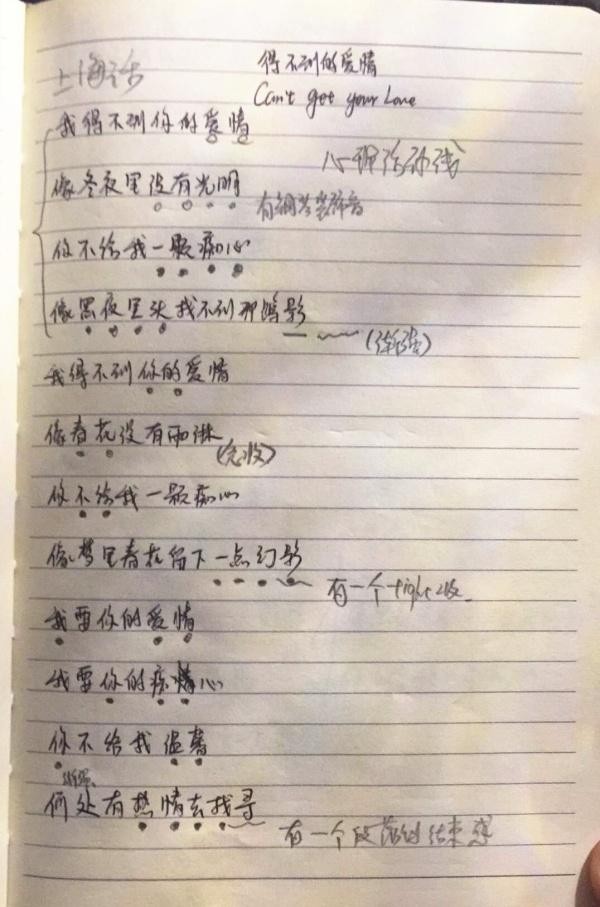 上海话
得不到的爱情
Can't get your Love
我得不到你的爱情
像冬夜里没有光明
你不给我一颗痴心
像黑夜里头找不到那踪影
我得不到你的爱情
像春花没有雨淋
你不给我一颗痴心
像梦里春花留下一点幻影
有一个 收
我要你的爱情
我要你的痴心
你不给我温馨
何处有热情去找寻
有一个段落的结束感